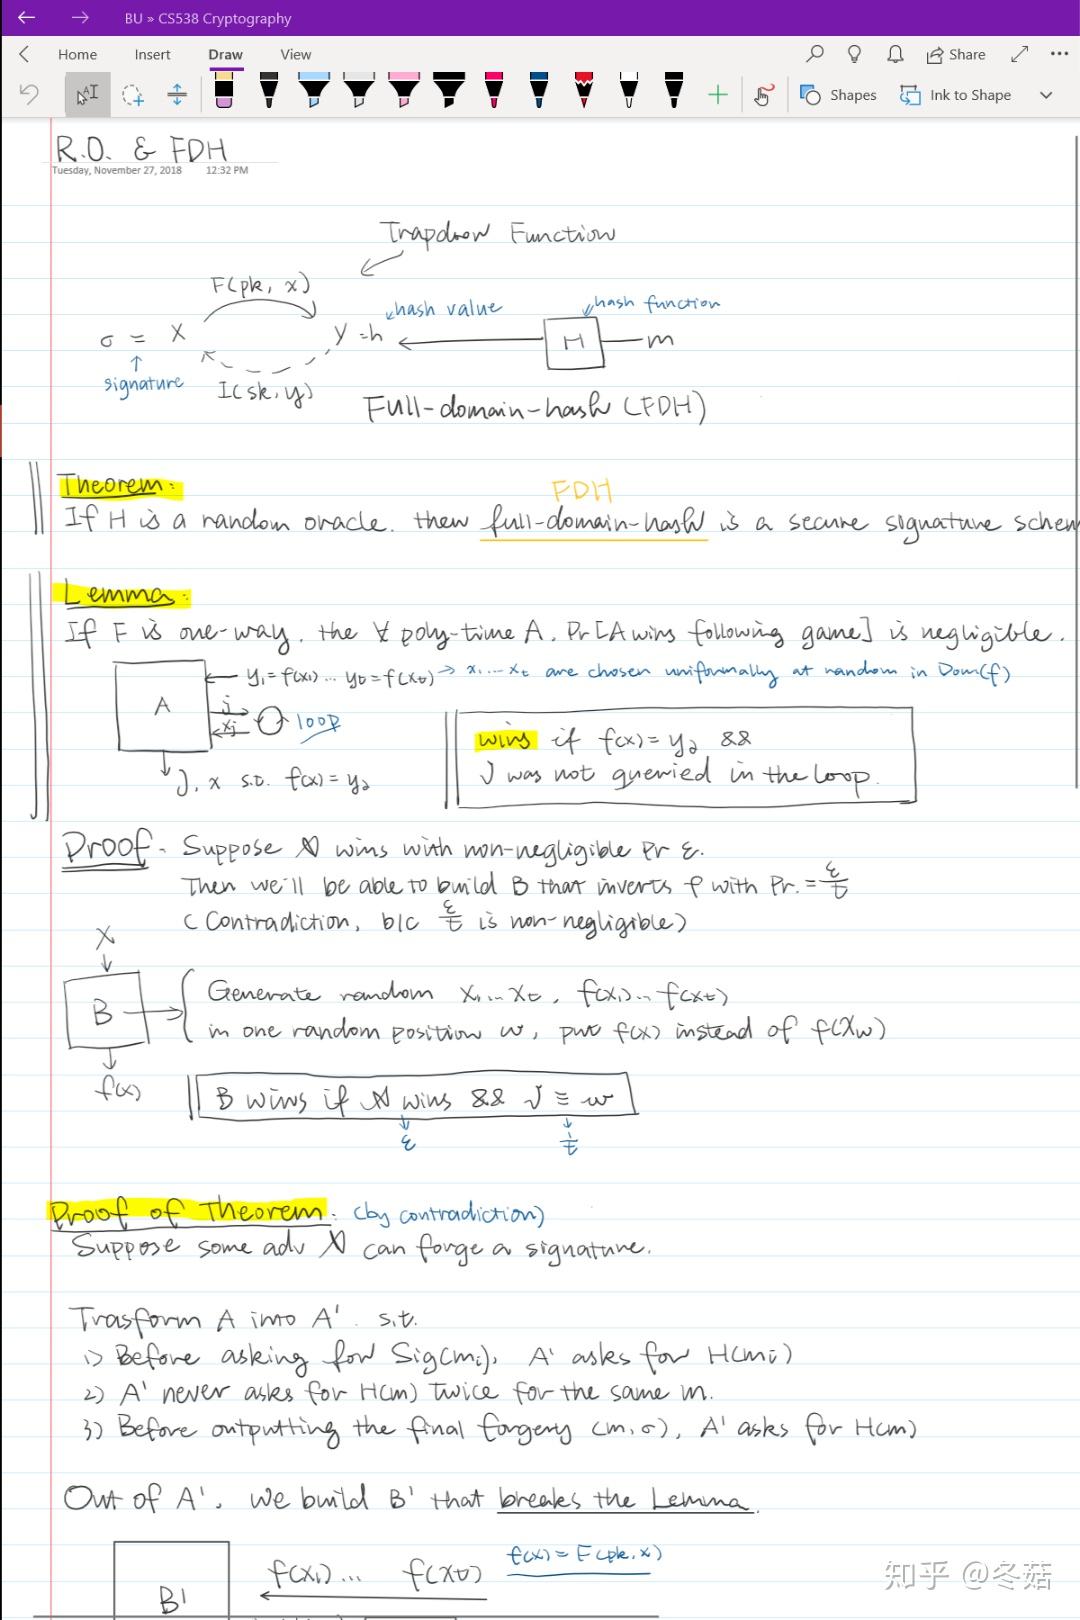 BU » CS538 Cryptography
Home Insert Draw View Share
Shapes Ink to Shape
R.O. & FDH
Tuesday, November 27, 2018 12:32 PM
Trapdoor Function
F(pk, x)
hash value
hash function
σ = x
y = h
H
m
signature
I(sk, y)
Full-domain-hash (FDH)
Theorem:
FDH
If H is a random oracle. then full-domain-hash is a secure signature schem
Lemma:
If F is one-way, the ∀ poly-time A, Pr[A wins following game] is negligible.
A
y₁=f(x₁) ... yt=f(xt) → x₁...xt are chosen uniformally at random in Dom(f)
j
xj
loop
wins if f(x)=yj &&
J was not queried in the loop.
J, x s.t. f(x)=yj
Proof. Suppose A wins with non-negligible Pr ε.
Then we'll be able to build B that inverts f with Pr. = ε/t
(Contradiction, b/c ε/t is non-negligible)
X
B
Generate random x₁...xt, f(x₁)..f(xt)
in one random position w, put f(x) instead of f(xw)
f(x)
B wins if A wins && J ≡ w
ε
1/t
Proof of Theorem: (by contradiction)
Suppose some adv A can forge a signature.
Trasform A into A' s.t.
1) Before asking for Sig(mi), A' asks for H(mi)
2) A' never asks for H(m) twice for the same m.
3) Before outputting the final forgery (m,σ), A' asks for H(m)
Out of A', we build B' that breaks the Lemma.
f(x)=F(pk,x)
f(x₁)... f(xt)
B'
知乎 @冬菇